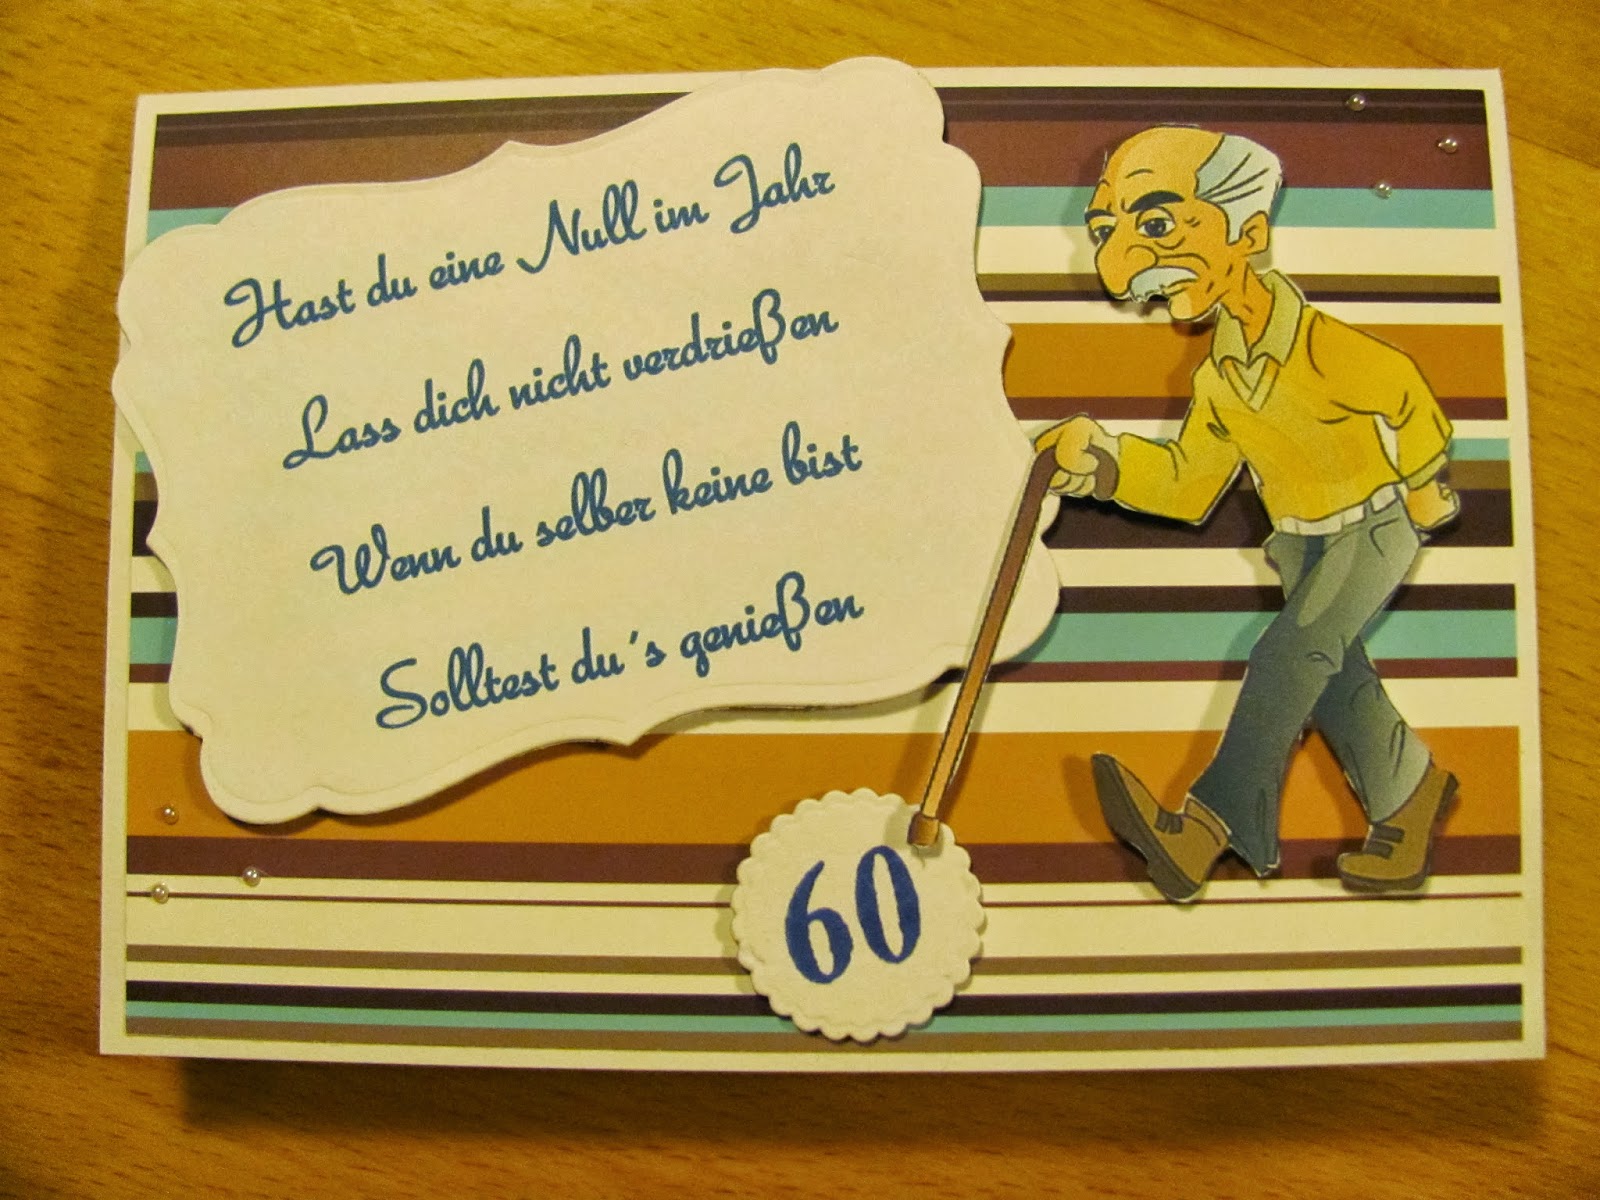 Hast du eine Null im Jahr
Lass dich nicht verdrießen
Wenn du selber keine bist
Solltest du´s genießen
60